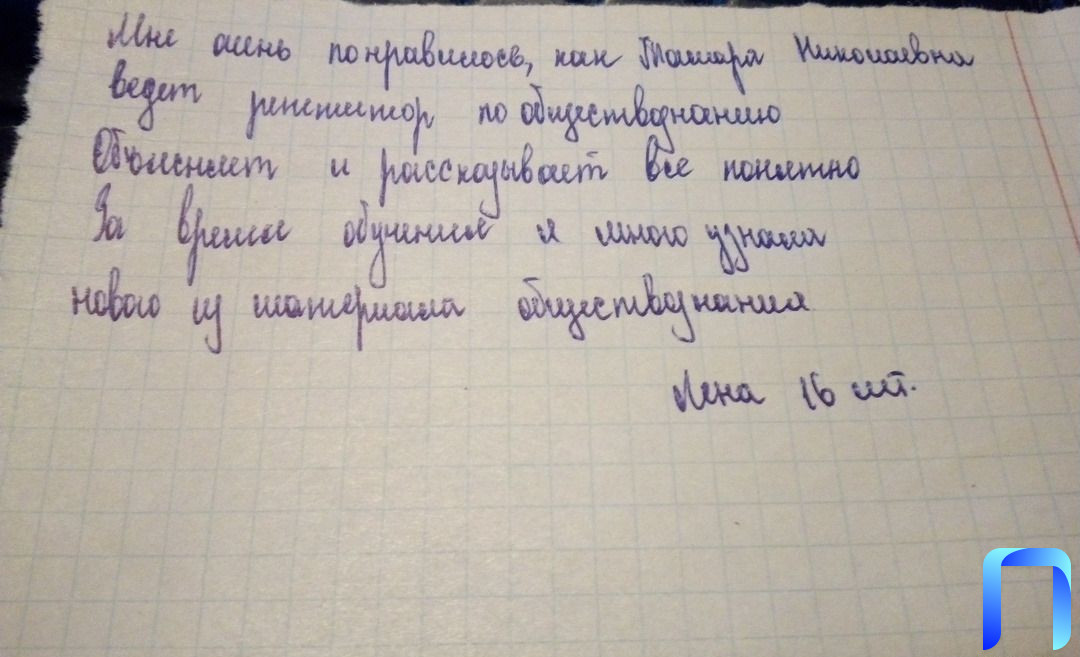 Мне очень понравилось, как Тамара Николаевна
ведет репетитор по обществознанию
Объясняет и рассказывает все понятно
За время обучения я много узнала
нового из материала обществознания
Лена 16 лет.
П